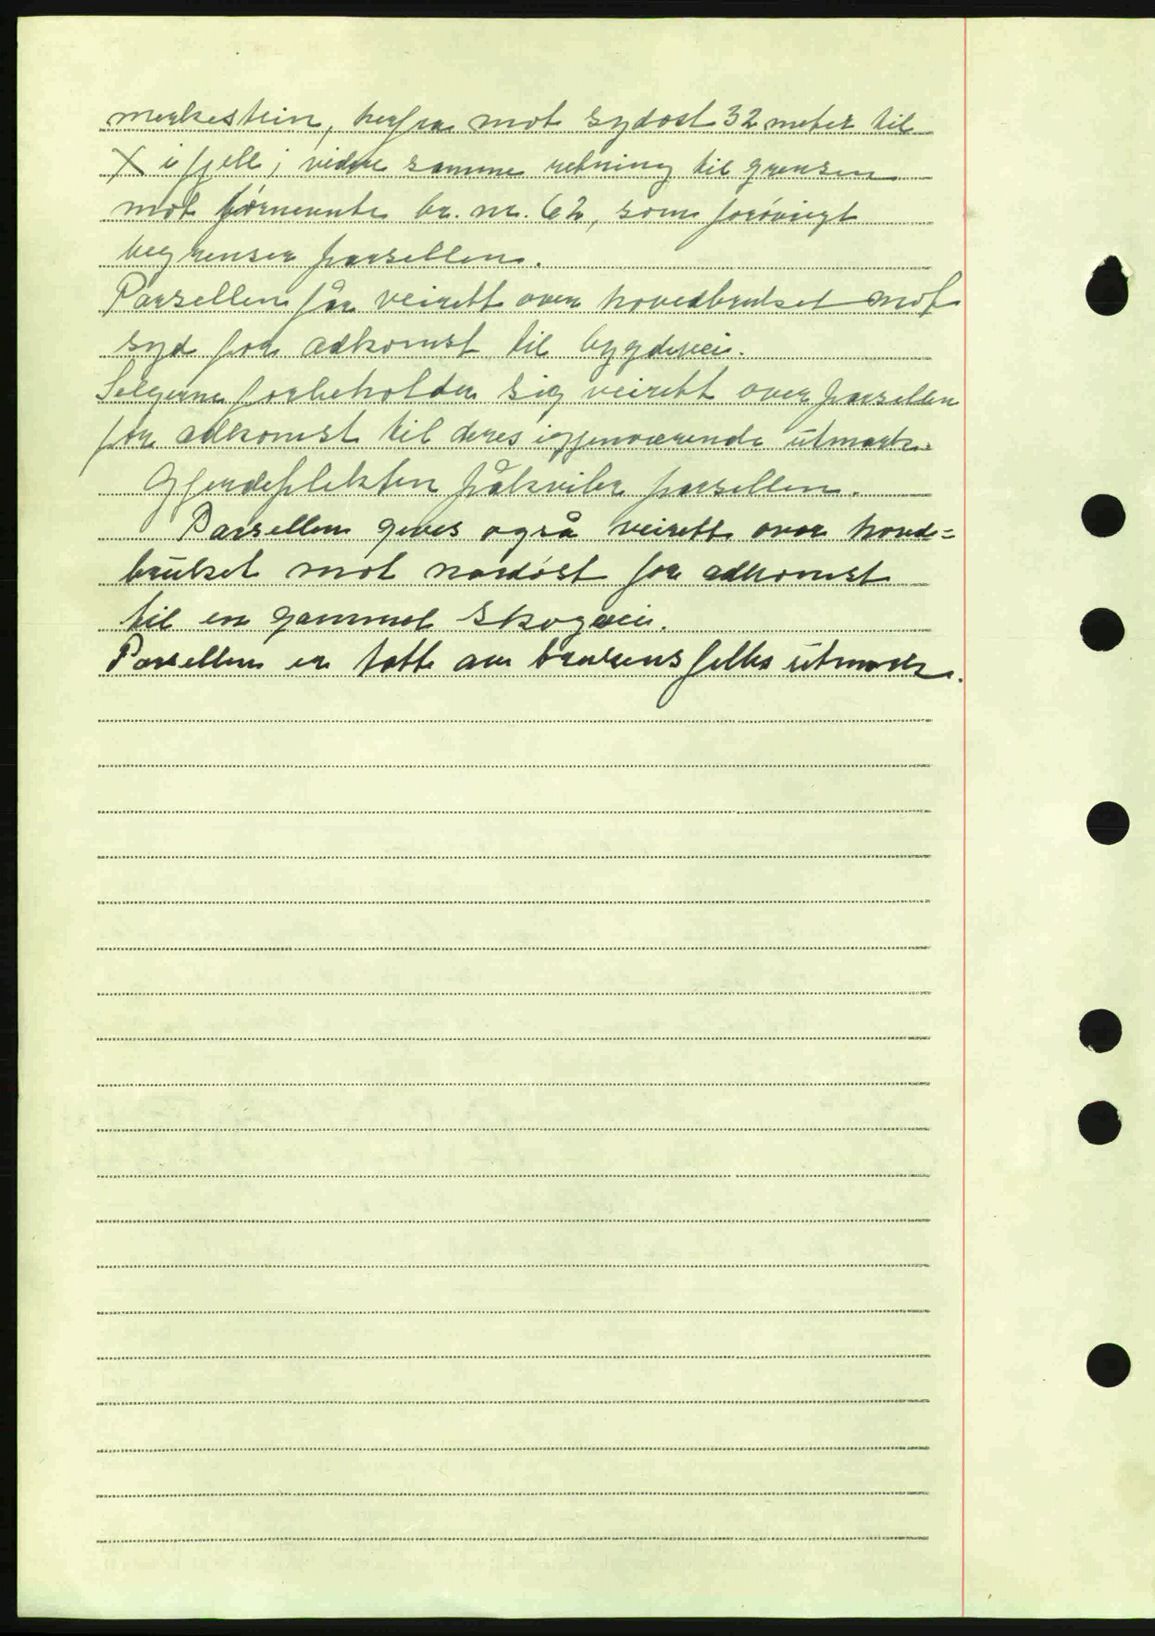 merkestein, herfra mot sydost 32 meter til
X i fjell; videre samme retning til grensen
mot førnevnte br. nr. 62, som forøvrigt
begrenser parsellen.
Parsellen får veirett over hovedbruket mot
syd for adkomst til bygdevei.
Selgerne forbeholder sig veirett over parsellen
for adkomst til deres igjenværende utmark.
Gjerdeplikten påkviler parsellen.
Parsellen gives også veirett over hoved=
bruket mot nordøst for adkomst
til en gammel skogvei.
Parsellen er tatt av brukens felles utmark.